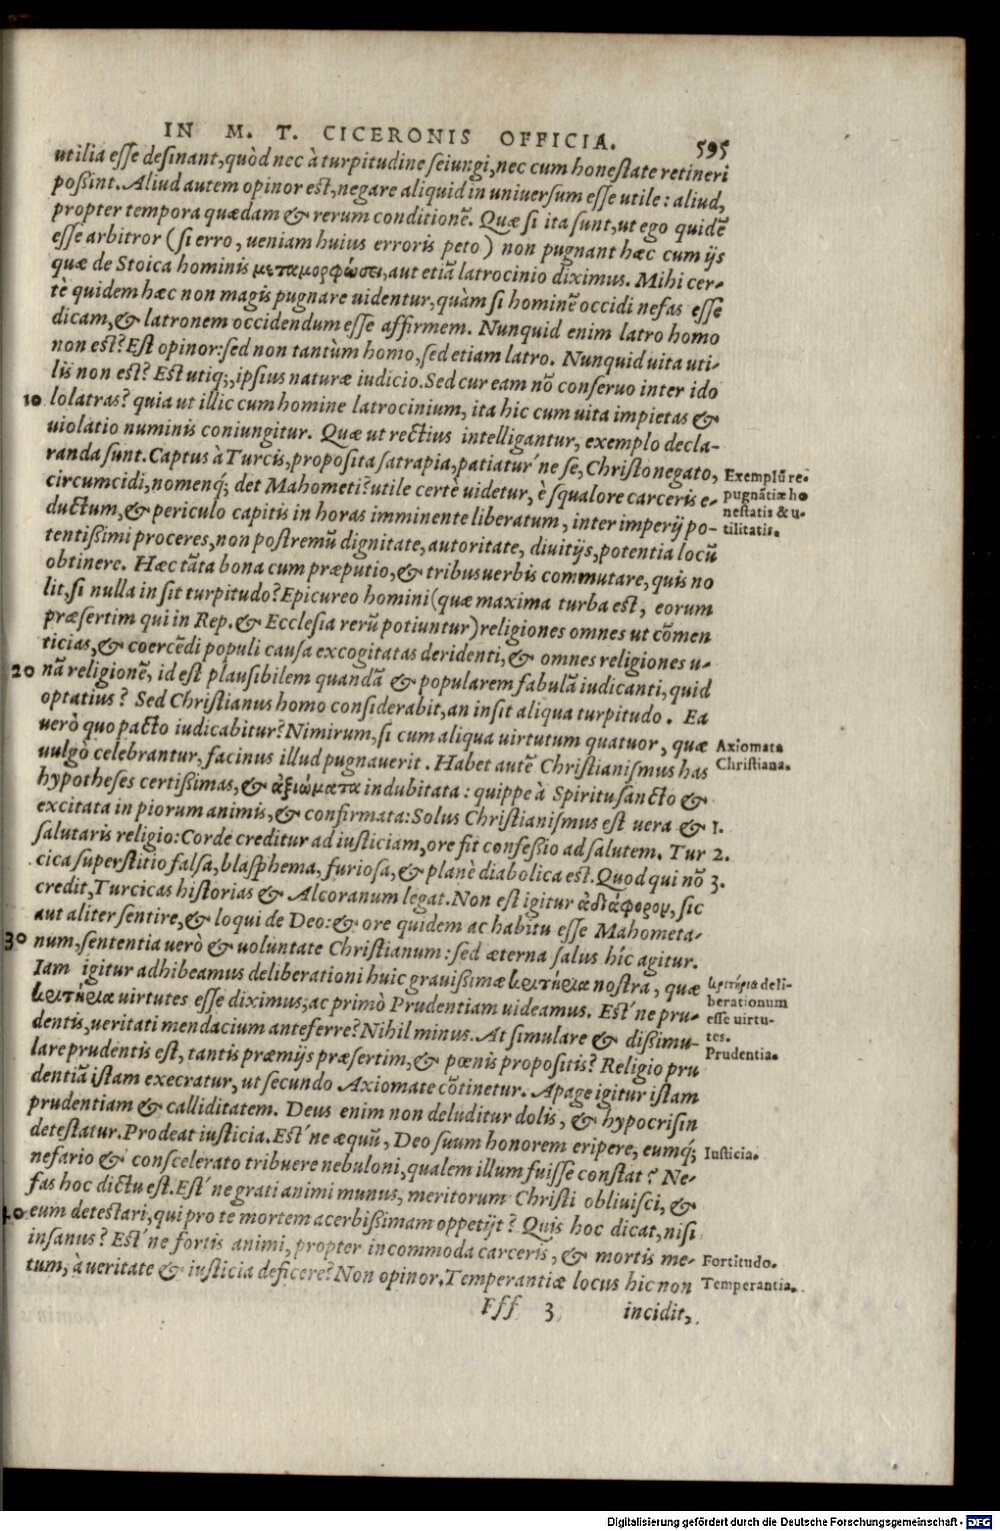 IN M. T. CICERONIS OFFICIA. 595
utilia esse desinant, quòd nec à turpitudine seiungi, nec cum honestate retineri
poßint. Aliud autem opinor est, negare aliquid in uniuersum esse utile: aliud,
propter tempora quædam & rerum conditionẽ. Quæ si ita sunt, ut ego quidẽ
esse arbitror (si erro, ueniam huius erroris peto) non pugnant hæc cum ijs
quæ de Stoica hominis μεταμορφώσει, aut etiã latrocinio diximus. Mihi cer-
tè quidem hæc non magis pugnare uidentur, quàm si hominẽ occidi nefas esse
dicam, & latronem occidendum esse affirmem. Nunquid enim latro homo
non est? Est opinor: sed non tantùm homo, sed etiam latro. Nunquid uita uti-
lis non est? Est utiq;, ipsius naturæ iudicio. Sed cur eam nõ conseruo inter ido
10 lolatras? quia ut illic cum homine latrocinium, ita hic cum uita impietas &
uiolatio numinis coniungitur. Quæ ut rectius intelligantur, exemplo decla-
randa sunt. Captus à Turcis, proposita satrapia, patiatur'ne se, Christo negato,
circumcidi, nomenq; det Mahometi? utile certè uidetur, è squalore carceris e-
ductum, & periculo capitis in horas imminente liberatum, inter imperij po-
tentißimi proceres, non postremũ dignitate, autoritate, diuitijs, potentia locũ
obtinere. Hæc tãta bona cum præputio, & tribus uerbis commutare, quis no
lit, si nulla insit turpitudo? Epicureo homini (quæ maxima turba est, eorum
præsertim qui in Rep. & Ecclesia rerũ potiuntur) religiones omnes ut cõmen
ticias, & coercẽdi populi causa excogitatas deridenti, & omnes religiones u-
20 nã religionẽ, id est plausibilem quandã & popularem fabulã iudicanti, quid
optatius? Sed Christianus homo considerabit, an insit aliqua turpitudo. Ea
uerò quo pacto iudicabitur? Nimirum, si cum aliqua uirtutum quatuor, quæ
uulgò celebrantur, facinus illud pugnauerit. Habet autẽ Christianismus has
hypotheses certißimas, & ἀξιώματα indubitata: quippe à Spiritusancto &
excitata in piorum animis, & confirmata: Solus Christianismus est uera & 1.
salutaris religio: Corde creditur ad iusticiam, ore fit confeßio ad salutem. Tur 2.
cica superstitio falsa, blasphema, furiosa, & planè diabolica est. Quod qui nõ 3.
credit, Turcicas historias & Alcoranum legat. Non est igitur ἀδιάφορον, sic
aut aliter sentire, & loqui de Deo: & ore quidem ac habitu esse Mahometa-
30 num, sententia uerò & uoluntate Christianum: sed æterna salus hîc agitur.
Iam igitur adhibeamus deliberationi huic grauißimæ κριτήρια nostra, quæ
κριτήρια uirtutes esse diximus, ac primò Prudentiam uideamus. Est'ne pru-
dentis, ueritati mendacium anteferre? Nihil minus. At simulare & dißimu-
lare prudentis est, tantis præmijs præsertim, & pœnis propositis? Religio pru
dentiã istam execratur, ut secundo Axiomate cõtinetur. Apage igitur istam
prudentiam & calliditatem. Deus enim non deluditur dolis, & hypocrisin
detestatur. Prodeat iusticia. Est'ne æquũ, Deo suum honorem eripere, eumq;
nefario & conscelerato tribuere nebuloni, qualem illum fuisse constat? Ne-
fas hoc dictu est. Est'ne grati animi munus, meritorum Christi obliuisci, &
40 eum detestari, qui pro te mortem acerbißimam oppetijt? Quis hoc dicat, nisi
insanus? Est'ne fortis animi, propter incommoda carceris, & mortis me-
tum, à ueritate & iusticia deficere? Non opinor. Temperantiæ locus hic non
Fff 3 incidit,
Exemplũ re-
pugnãtiæ ho
nestatis & u-
tilitatis.
Axiomata
Christiana.
κριτήρια deli-
berationum
esse uirtu-
tes.
Prudentia.
Iusticia.
Fortitudo.
Temperantia.
Digitalisierung gefördert durch die Deutsche Forschungsgemeinschaft - DFG